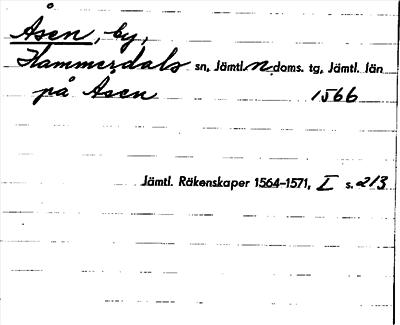 Åsen, by,
Hammerdals sn, Jämtl. n. doms. tg, Jämtl. län
på Åsen 1566
Jämtl. Räkenskaper 1564–1571, I s. 213